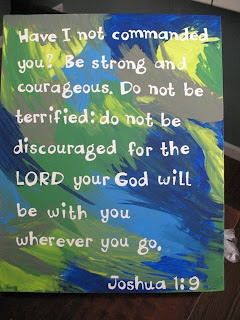 Have I not commanded
you? Be strong and
courageous. Do not be
terrified: do not be
discouraged for the
LORD your God will
be with you
wherever you go.
Joshua 1:9